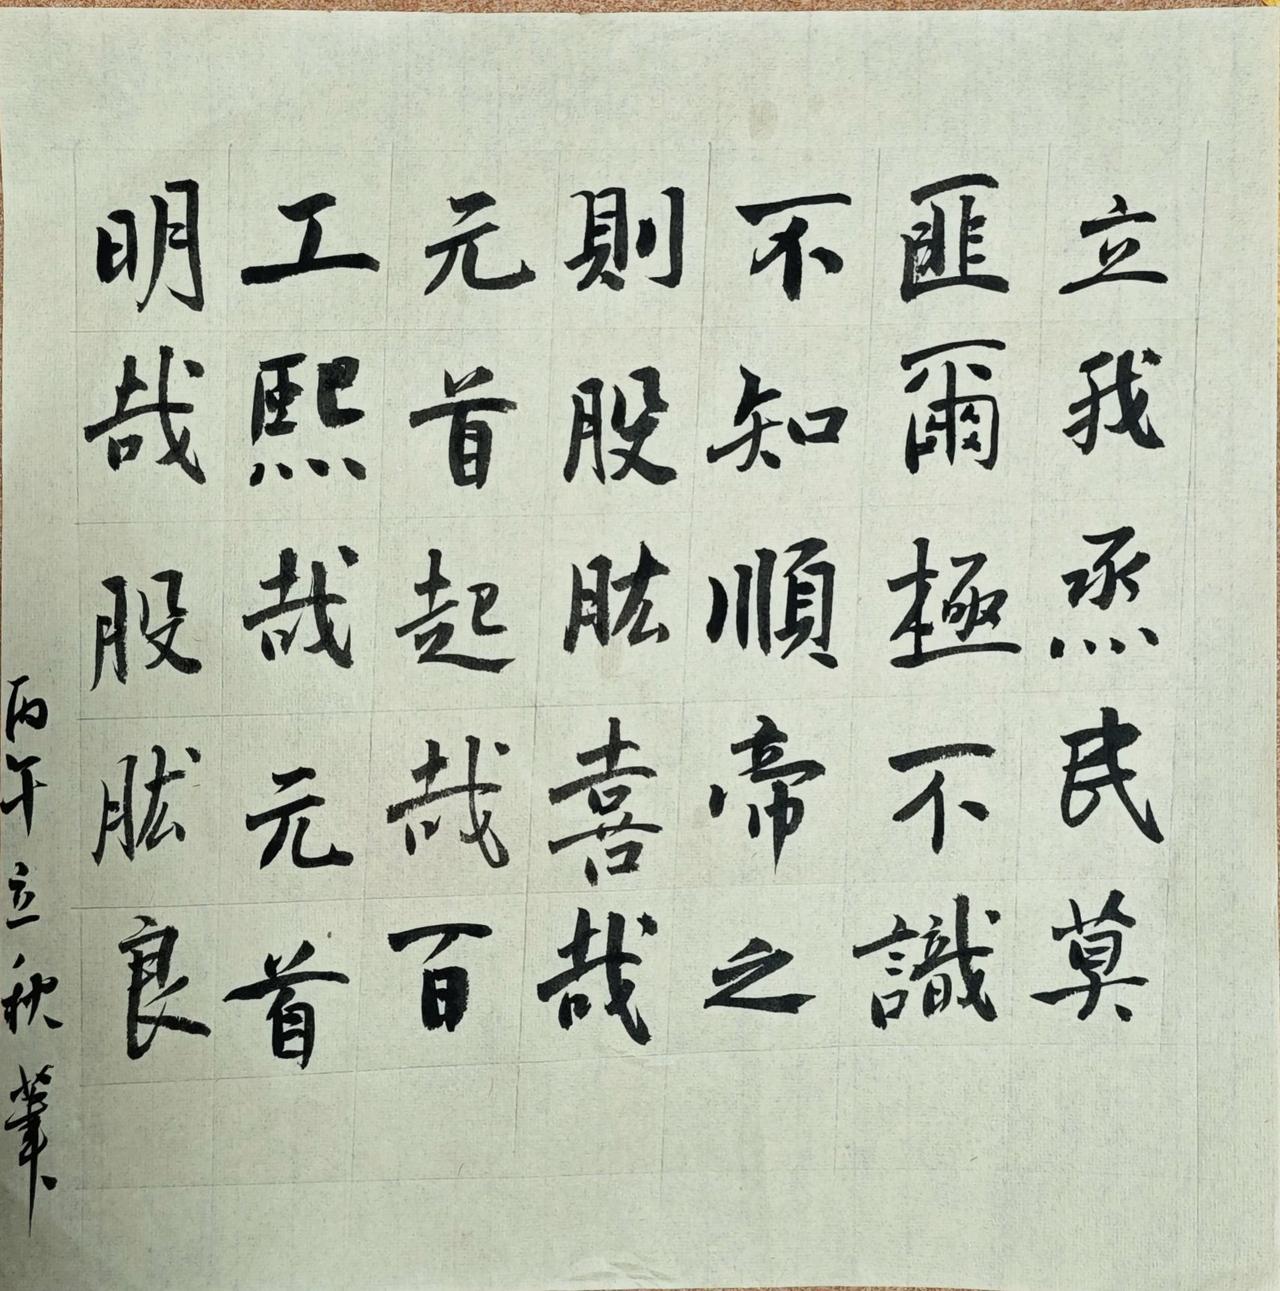 立我烝民莫
匪爾極不識
不知順帝之
則股肱喜哉
元首起哉百
工熙哉元首
明哉股肱良
丙午立秋筆